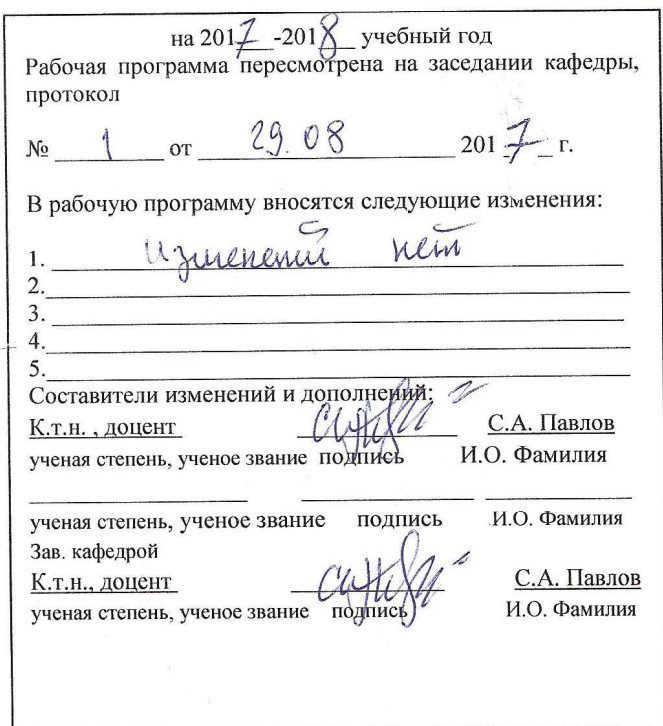 на 2017 -2018 учебный год
Рабочая программа пересмотрена на заседании кафедры,
протокол
№ 1 от 29.08 2017 г.
В рабочую программу вносятся следующие изменения:
1. Изменений нет
2.
3.
4.
5.
Составители изменений и дополнений:
К.т.н. , доцент С.А. Павлов
ученая степень, ученое звание подпись И.О. Фамилия
ученая степень, ученое звание подпись И.О. Фамилия
Зав. кафедрой
К.т.н., доцент С.А. Павлов
ученая степень, ученое звание подпись И.О. Фамилия